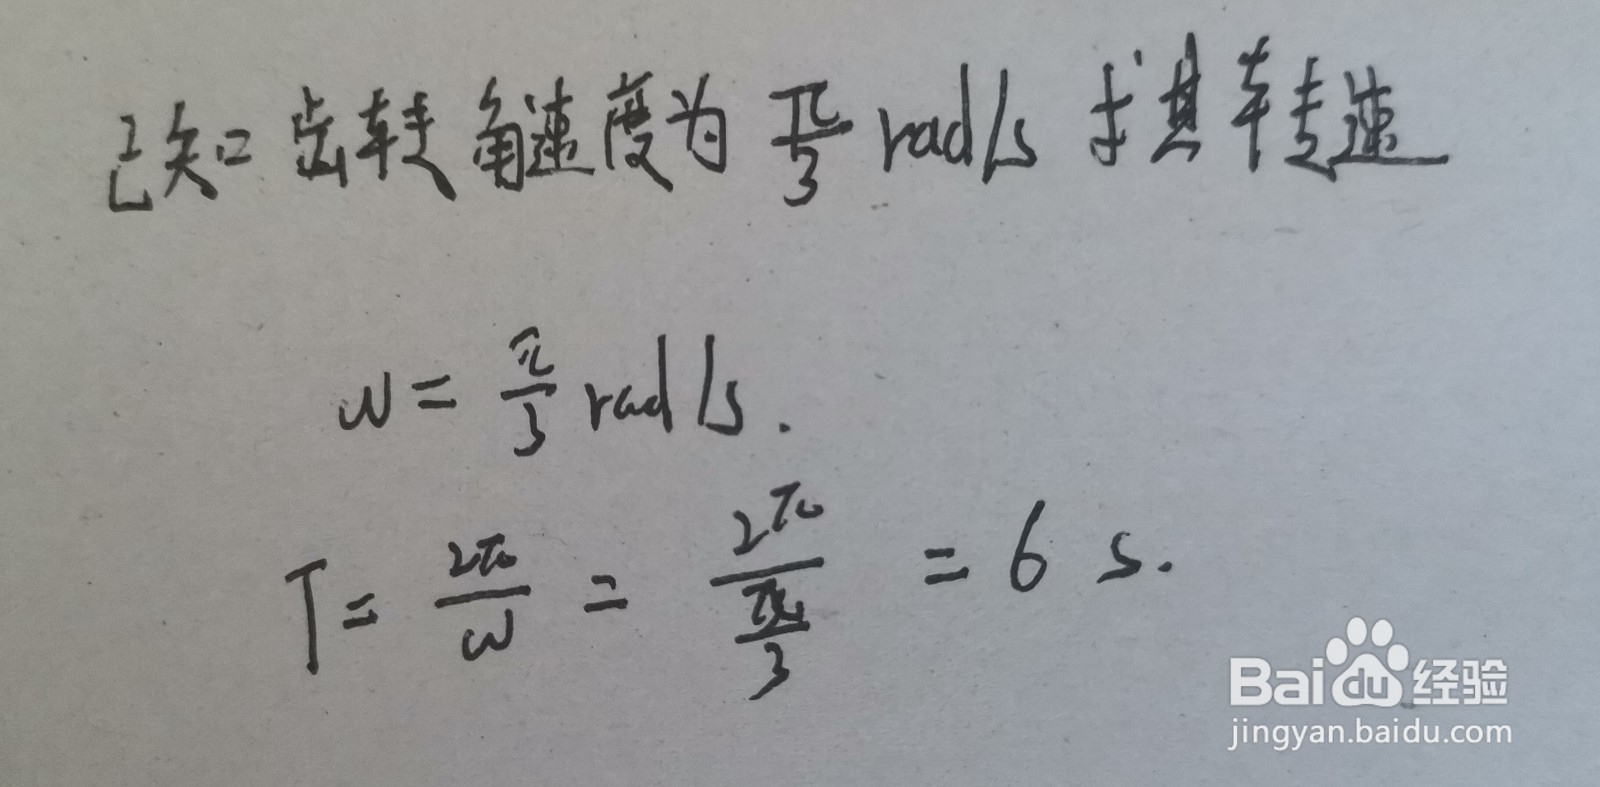 已知 齿轮角速度为 π/3 rad/s 求其转速
ω = π/3 rad/s.
T = 2π/ω = 2π/(π/3) = 6 s.
Baidu经验
jingyan.baidu.com